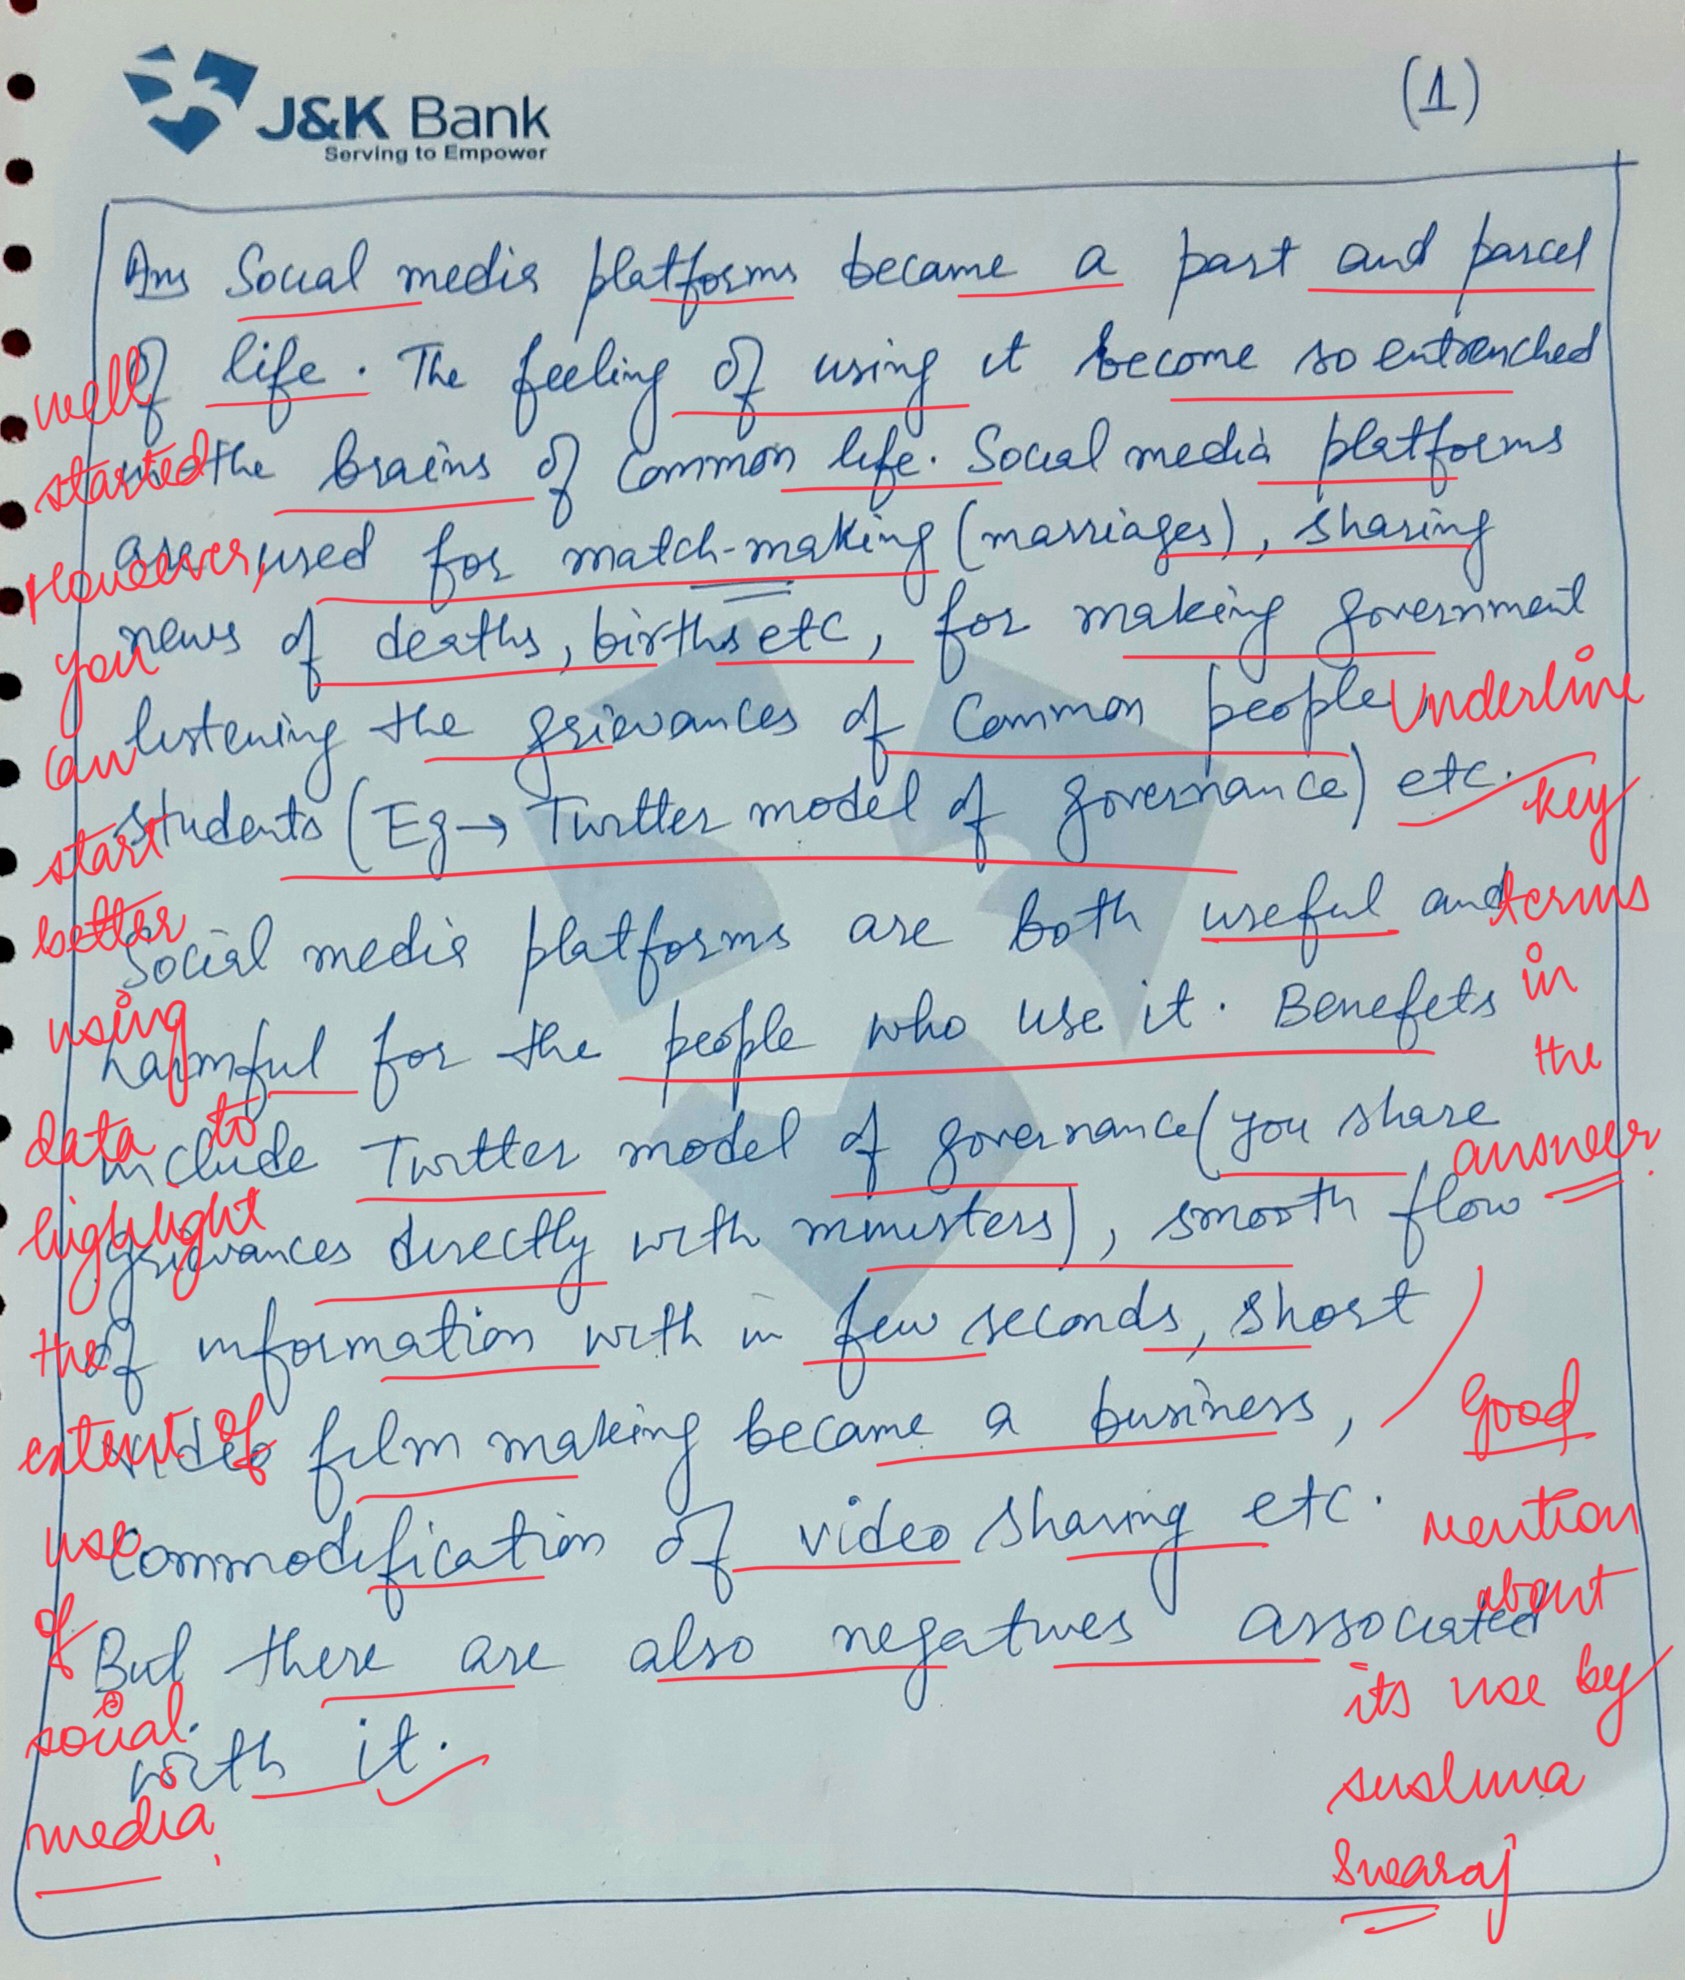 J&K Bank
Serving to Empower
(1)
Ans Social media platforms became a part and parcel
of life. The feeling of using it become so entrenched
the brains of common life. Social media platforms
are used for match-making (marriages), sharing
news of deaths, births etc, for making government
listening the grievances of Common people,
students (Eg → Twitter model of governance) etc.
Social media platforms are both useful and
harmful for the people who use it. Benefets
include Twitter model of governance (you share
grievances directly with ministers), smooth flow
of information with in few seconds, short
video film making became a business,
commodification of video sharing etc.
But there are also negatives associated
with it.
well
started
However,
you
can
start
better
using
data to
highlight
the
extent of
use
of
social
media
Underline
key
terms
in
the
answer
Good
mention
about
its use by
sushma
Swaraj